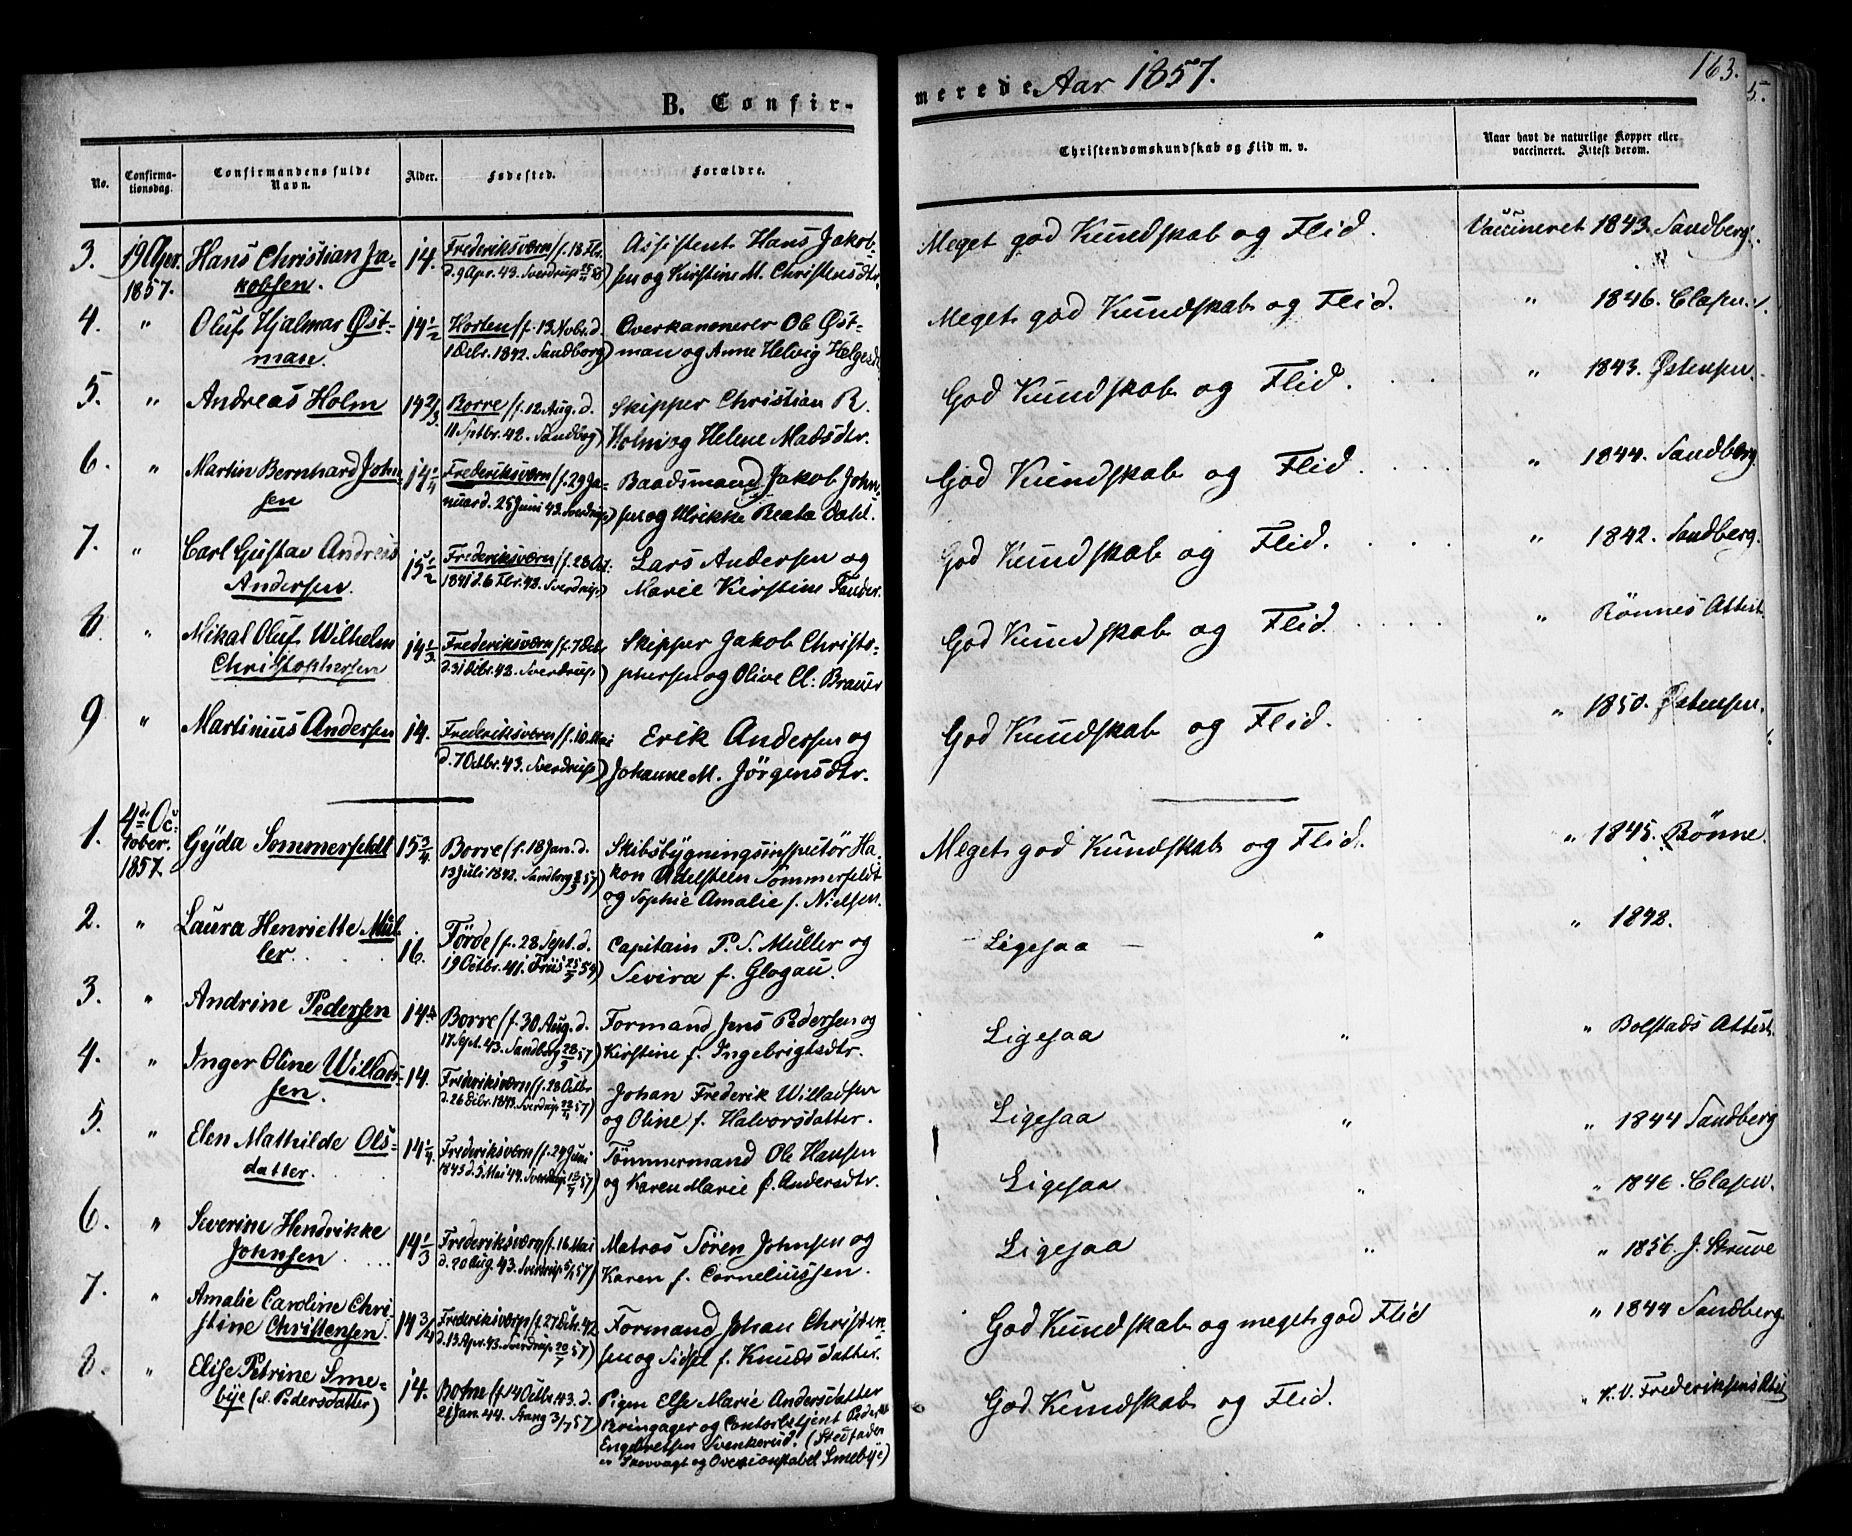 B. Confir-
merede Aar 1857.
163.
5.
No.
Confirma-
tionsdag.
Confirmandens fulde
Navn.
Alder.
Fødested.
Forældre.
Christendomskundskab og Flid m. v.
Naar havt de naturlige Kopper eller
vaccineret. Attest derom.
3. 19 Apr. Hans Christian Ja- 14. Frederiksværn (f. 18 Febr. Assistent Hans Jakob- Meget god Kundskab og Flid. Vaccineret 1843. Sandberg.
1857. kobsen. d. 9 Apr. 43. Sverdrup sen og Kirstine M. Christensdtr.
4. " Oluf Hjalmar Øst- 14 1/2 Horten (f. 13 Novbr. d. Overkanonerer Ole Øst- Meget god Kundskab og Flid. " 1846. Clasen.
man. 1 Decbr. 1842. Sandberg) man og Anne Helvig Helgesdtr.
5. " Andreas Holm 14 2/3 Borre (f. 12 Aug. d. Skipper Christian R. God Kundskab og Flid. " 1843. Østensen.
11 Septbr. 42. Sandberg) Holm og Helene Madsdtr.
6. " Martin Bernhard John- 14 1/4 Frederiksværn (f. 29 Ja- Baadsmand Jakob John- God Kundskab og Flid. " 1844. Sandberg.
sen nuar d. 25 Juni 43. Sverdrup) sen og Ulrikke Beata Dahl.
7. " Carl Gustav Andreas 15 1/2 Frederiksværn (f. 28 Oct. Lars Andersen og God Kundskab og Flid. " 1842. Sandberg.
Andersen. 1841 d. 6 Febr. 42. Sverdrup) Marie Kirstine Tander.
8. " Mikal Oluf Wilhelm 14 1/3 Frederiksværn (f. 7 Decbr. Skipper Jakob Christo- God Kundskab og Flid. " Rønnes Attest.
Christophersen d. 31 Decbr. 42. Sverdrup) phersen og Olive Cl: Brauer
9 " Martinius Andersen 14. Frederiksværn (f. 10 Mai Erik Andersen og God Kundskab og Flid. " 1850. Østensen.
d. 7 Octbr. 43. Sverdrup) Johanne M. Jörgensdtr.
1. 4de Oc- Gyda Sommerfeldt 15 3/4 Borre (f. 18 Jan. d. Skibsbygningsinspectör Ha- Meget god Kundskab og Flid. " 1845. Rönne.
tober. 13 Juli 1842. Sandberg 57) kon Adelsteen Sommerfeldt
1857. og Sophie Amalie f. Nielsen.
2. " Laura Henriette Mül- 16. Förde (f. 28 Sept. d. Capitain P. S. Müller og Ligesaa " " 1842.
ler. 19 Octbr. 41. Friis 25/7 54) Sevira f. Glogau.
3. " Andrine Pedersen 14. Borre (f. 30 Aug. d. Formand Jens Pedersen og Ligesaa " " Bolstads Attest.
17 Sept. 43. Sandberg 28/3 57) Kirstine f. Ingebrigtsdtr.
4. " Inger Oline Willad- 14. Frederiksværn (f. 28 Octbr. Johan Frederik Willadsen Ligesaa " " 1844 Sandberg
sen. d. 26 Decbr. 1843. Sverdrup 57) og Oline f. Halvorsdatter.
5. " Elen Mathilde Ols- 14 1/4 Frederiksværn (f. 29 Juni Tömmermand Ole Hansen Ligesaa " " 1846. Clasen.
datter. 1843 d. 5 Mai 44. Sverdrup 57) og Karen Marie f. Andersdtr.
6. " Severine Hendrikke 14 1/3 Frederiksværn (f. 16 Mai Matros Sören Johnsen og Ligesaa " " 1856. J. Struve
Johnsen. d. 20 Aug. 43. Sverdrup 57) Karen f. Corneliussen.
7. " Amalie Caroline Chri- 14 3/4 Frederiksværn (f. 27 Decbr. 42 Formand Johan Christen- God Kundskab og meget god Flid " 1844 Sandberg
stine Christensen. d. 13 Apr. 43. Sverdrup 20/7 57) sen og Sidsel f. Knudsdatter.
8. " Elise Petrine Sme- 14. Botne (f. 14 Octbr. 43. d. Pigen Else Marie Andersdatter God Kundskab og Flid. " K. V. Frederiksens Attest
bye (el. Pedersdatter) 21 Jan. 44. Stang 3/7 57) Kringager og Contorbetjent Peder
Engebretsen Svenkerud. (Stedfader
er Skovvogt og Overconstabel Smebye)